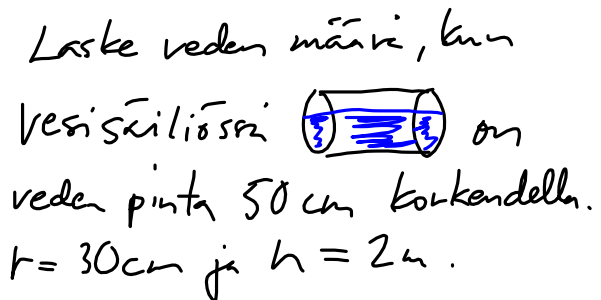 Laske veden määrä, kun
vesisäiliössä on
veden pinta 50 cm korkeudella.
r = 30 cm ja h = 2 m.